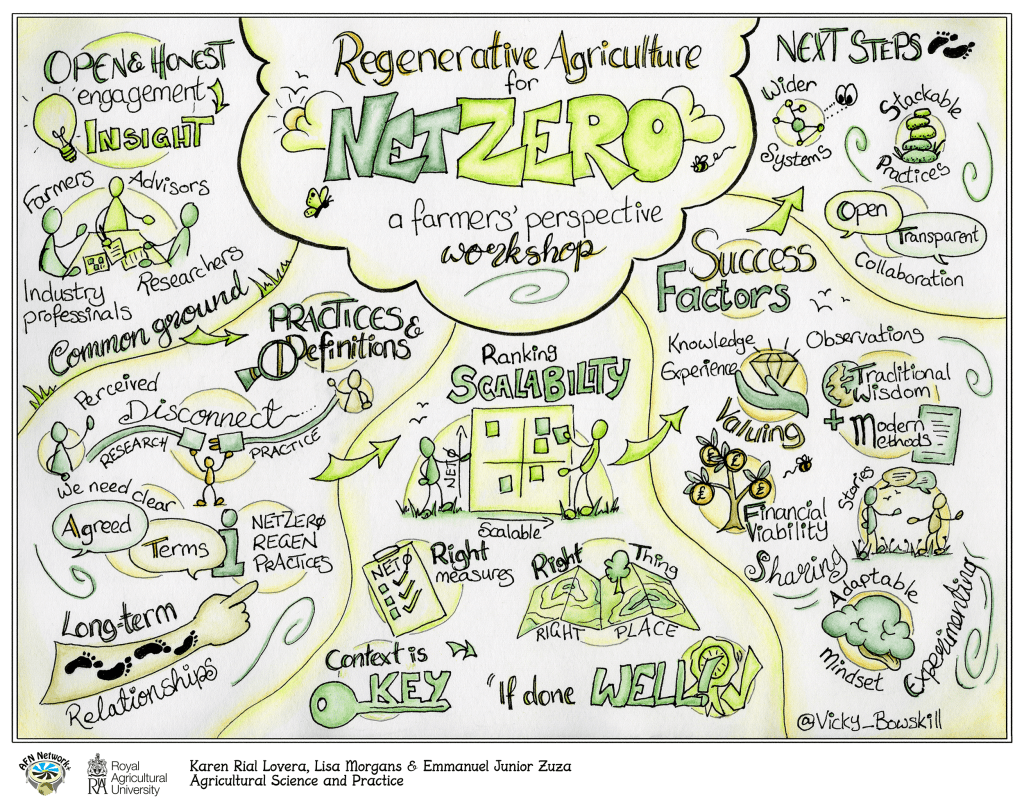 Regenerative Agriculture
for
NETZERO
a farmers' perspective
workshop
OPEN & HONEST
engagement
INSIGHT
Farmers
Advisors
Industry
professinals
Researchers
Common ground
PRACTICES &
Definitions
Perceived
Disconnect
RESEARCH
PRACTICE
We need clear
Agreed
Terms
i
NETZERØ
REGEN
PRACTICES
Long-term
Relationships
Ranking
SCALABILITY
NETØ
Scalable
NETØ
Right
measures
Right
Thing
RIGHT
PLACE
Context is
KEY
"If done
WELL!"
Success
Factors
Knowledge
Experience
Valuing
Observations
Traditional
Wisdom
+
Modern
Methods
££££
Financial
Viability
Stories
Sharing
Adaptable
Mindset
Experimenting
NEXT STEPS
Wider
Systems
Stackable
Practices
Open
Transparent
Collaboration
@Vicky_Bowskill
AFN Network+
RAU
Royal
Agricultural
University
Karen Rial Lovera, Lisa Morgans & Emmanuel Junior Zuza
Agricultural Science and Practice